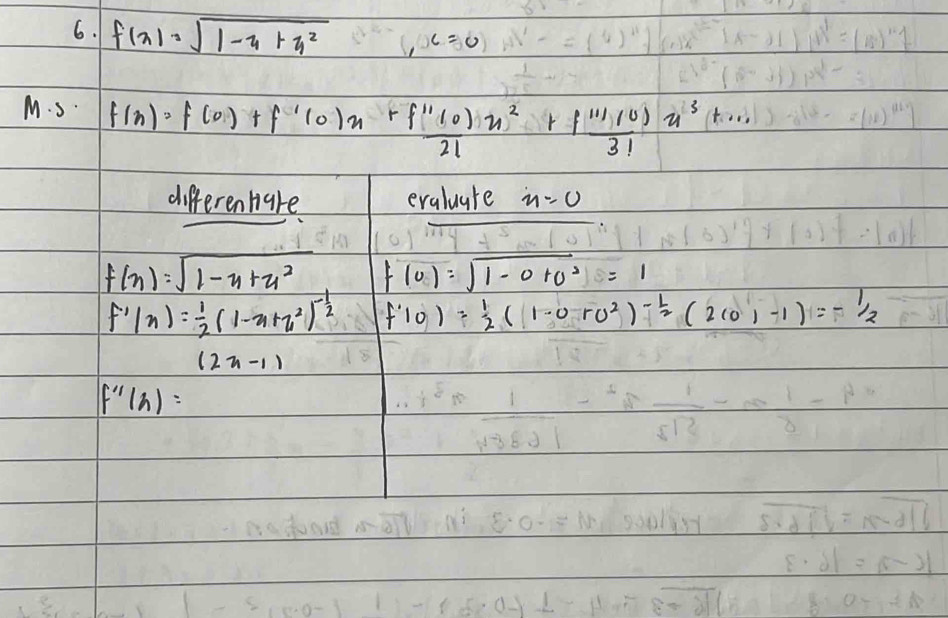 6. f(x) = √(1-x+x²) , c=0
M.S. f(x) = f(0) + f'(0)x + f''(0)/2! x² + f'''(0)/3! x³ + ...
differentiate evaluate x=0
f(x) = √(1-x+x²) f(0) = √(1-0+0²) = 1
f'(x) = ½(1-x+x²)^-½ f'(0) = ½(1-0+0²)^-½ (2(0)-1) = -½
(2x-1)
f''(x) =